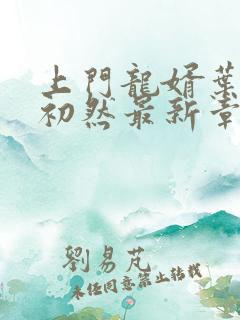 上門龍婿葉
初然最新章
劉易芃
未經同意禁止轉載